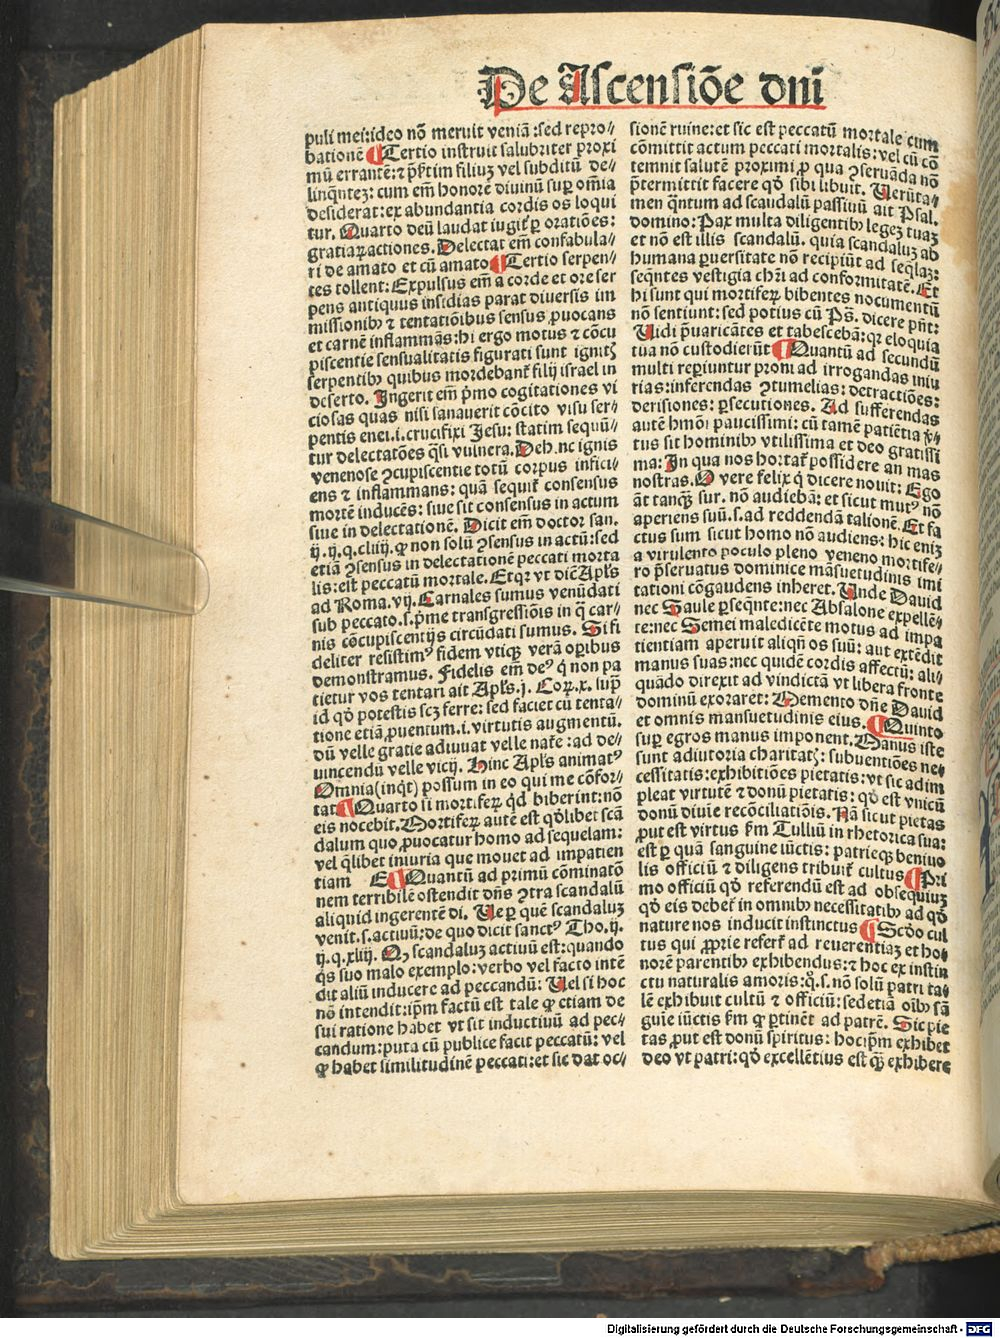 De Ascensiõe dni
puli mei:ideo nõ meruit veniã:sed repro⸗
batione ¶Tertio instruit salubriter proxi
mũ errantẽ:⁊ p̃ſertim filiuʒ vel subditũ de⸗
linq̃ntez: cum em̃ honorẽ diuinũ sup om̃ia
desiderat:ex abundantia cordis os loqui
tur. Quarto deũ laudat iugit̃ ꝑ oratiões:
gratiaꝝ actiones. Delectat em̃ confabula⸗
ri de amato et cũ amato ¶Tertio serpen⸗
tes tollent: Expulsus em̃ a corde et ore ser
pens antiquus insidias parat diuersis im
missionibꝰ ⁊ tentatiõibus sensus ꝓuocans
et carnẽ inflammãs:hi ergo motus ⁊ cõcu
piscentie sensualitatis figurati sunt ignitʒ
serpentibꝰ quibus mordebant̃ filij israel in
deserto. Ingerit em̃ p̃mo cogitationes vi
ciosas quas nisi sanauerit cõcito visu ser⸗
pentis enei.i.crucifixi Jesu: statim sequũ⸗
tur delectatões q̃si vulnera. Deh.nc ignis
venenose ↄcupiscentie totũ corpus infici⸗
ens ⁊ inflammans: quã sequit̃ consensus
mortẽ inducẽs: siue sit consensus in actum
siue in delectationẽ. Dicit em̃ doctor san.
ij.ij.q.cliiij. ꝙ non solũ ↄsensus in actũ:sed
etiã ↄsensus in delectationẽ peccati morta
lis:est peccatũ mortale. Etqꝛ vt dic̃ Apl̃s
ad Roma.vij. Carnales sumus venũdati
sub peccato.s.p̃me transgressiõis in q̃ car⸗
nis cõcupiscentijs circũdati sumus. Si fi
deliter resistimꝰ fidem vtiqꝫ verã oꝑibus
demonstramus. Fidelis em̃ deꝰ q̃ non pa
tietur vos tentari ait Apl̃s.j. Coꝝ.x. sup̃
id qd̃ potestis scʒ ferre: sed faciet cũ tenta⸗
tione etiã ꝓuentum.i.virtutis augmentũ.
dũ velle gratie adiuuat velle nat̃e :ad de⸗
uincendũ velle vicij. Hinc Apl̃s animatꝰ
Omnia(inq̃t) possum in eo qui me cõfor⸗
tat ¶Quarto si mort.feꝝ q̃d biberint:nõ
eis nocebit. Mortifeꝝ autẽ est qd̃libet scã
dalum quo ꝓuocatur homo ad sequelam:
vel q̃libet iniuria que mouet ad impatien
tiam E ¶Quantũ ad primũ cõminatõ
nem terribilẽ ostendit dñs ↄtra scandalũ
aliquid ingerentẽ di. Ue ꝑ quẽ scandaluʒ
venit.s.actiuũ:de quo dicit sanctꝰ Tho.ij.
ij.q.xliij. Q, scandaluʒ actiuũ est:quando
q̃s suo malo exemplo:verbo vel facto intẽ
dit aliũ inducere ad peccandũ: Uel si hoc
nõ intendit:ip̃m factũ est tale ꝙ etiam de
sui ratione habet vt sit inductiuũ ad pec⸗
candum:puta cũ publice facit peccatũ: vel
ꝙ habet similitudinẽ peccati:et sic dat oc⸗
sionẽ ruine:et sic est peccatũ mortale cum
cõmittit actum peccati mortalis:vel cũ cõ
temnit salutẽ proximi ꝓ qua ↄseruãda nõ
p̃termittit facere qd̃ sibi libuit. Uerũta⸗
men q̃ntum ad scaudalũ passiuũ ait Psal.
domino: Pax multa diligentibꝰ legeʒ tuaʒ
et nõ est illis scandalũ. quia scandaluʒ ab
humana ꝑuersitate nõ recipiũt ad seq̃laʒ:
seq̃ntes vestigia chr̃i ad conformitatẽ. Et
hi sunt qui mortifeꝝ bibentes nocumentũ
nõ sentiunt: sed potius cũ Ps̃. dicere pñt:
Uidi p̃uaricãtes et tabescebã:qꝛ eloquia
tua nõ custodierũt ¶Quantũ ad secundũ
multi reꝑiuntur proni ad irrogandas iniu
rias:inferendas ↄtumelias: detractiões:
derisiones: ꝑsecutiones. Ad sufferendas
autẽ hmõi paucissimi: cũ tamẽ patiẽtia ṽ⸗
tus sit hominibꝰ vtilissima et deo gratissi
ma: In qua nos hortat̃ possidere an mas
nostras. O vere felix q̃ dicere nouit: Ego
ãt tanqꝫ sur. nõ audiebã: et sicut mutꝰ nõ
aperiens suũ.s.ad reddendã talionẽ. Et fa
ctus sum sicut homo nõ audiens: hic eniʒ
a virulento poculo pleno veneno mortife⸗
ro p̃seruatus dominice mãsuetudinis imi
tationi cõgaudens inheret. Unde Dauid
nec Saule ꝑseq̃nte:nec Absalone expellẽ⸗
te:nec Semei maledicẽte motus ad impa
tientiam aperuit aliqñ os suũ: aut extẽdit
manus suas:nec quidẽ cordis affectũ: ali⸗
quãdo direxit ad vindictã vt libera fronte
dominũ exoraret: Memento dñe Dauid
et omnis mansuetudinis eius. ¶Quinto
sup egros manus imponent. Manus iste
sunt adiutoria charitatʒ: subuentiões ne⸗
cessitatis:exhibitiões pietatis:vt sic adim
pleat virtutẽ ⁊ donũ pietatis: qd̃ est vnicũ
donũ diuie recõciliatiõis. Nã sicut pietas
ꝓut est virtus fm̃ Tulliũ in rhetorica sua:
est ꝑ quã sanguine iũctis: patrieqꝫ beniuo
lis officiũ ⁊ diligens tribuit̃ cultus ¶Pri
mo officiũ qd̃ referendũ est ad obsequiuʒ
qd̃ eis debet̃ in omnibꝰ necessitatibꝰ ad qd̃
nature nos inducit instinctus ¶Scd̃o cul
tus qui ꝓprie refert̃ ad reuerentiaʒ et ho⸗
norẽ parentibꝰ exhibendus:⁊ hoc ex instin
ctu naturalis amoris:q̃.s. nõ solũ patri ta⸗
lẽ exhibuit cultũ ⁊ officiũ: sedetiã oĩbꝰ sã
guie iũctis fm̃ ꝙ ꝑtinẽt ad patrẽ. Sic pie
tas ꝓut est donũ spiritus: hocip̃m exhibet
deo vt patri: qd̃ excellẽtius est qꝫ exhibere
Digitalisierung gefördert durch die Deutsche Forschungsgemeinschaft - DFG